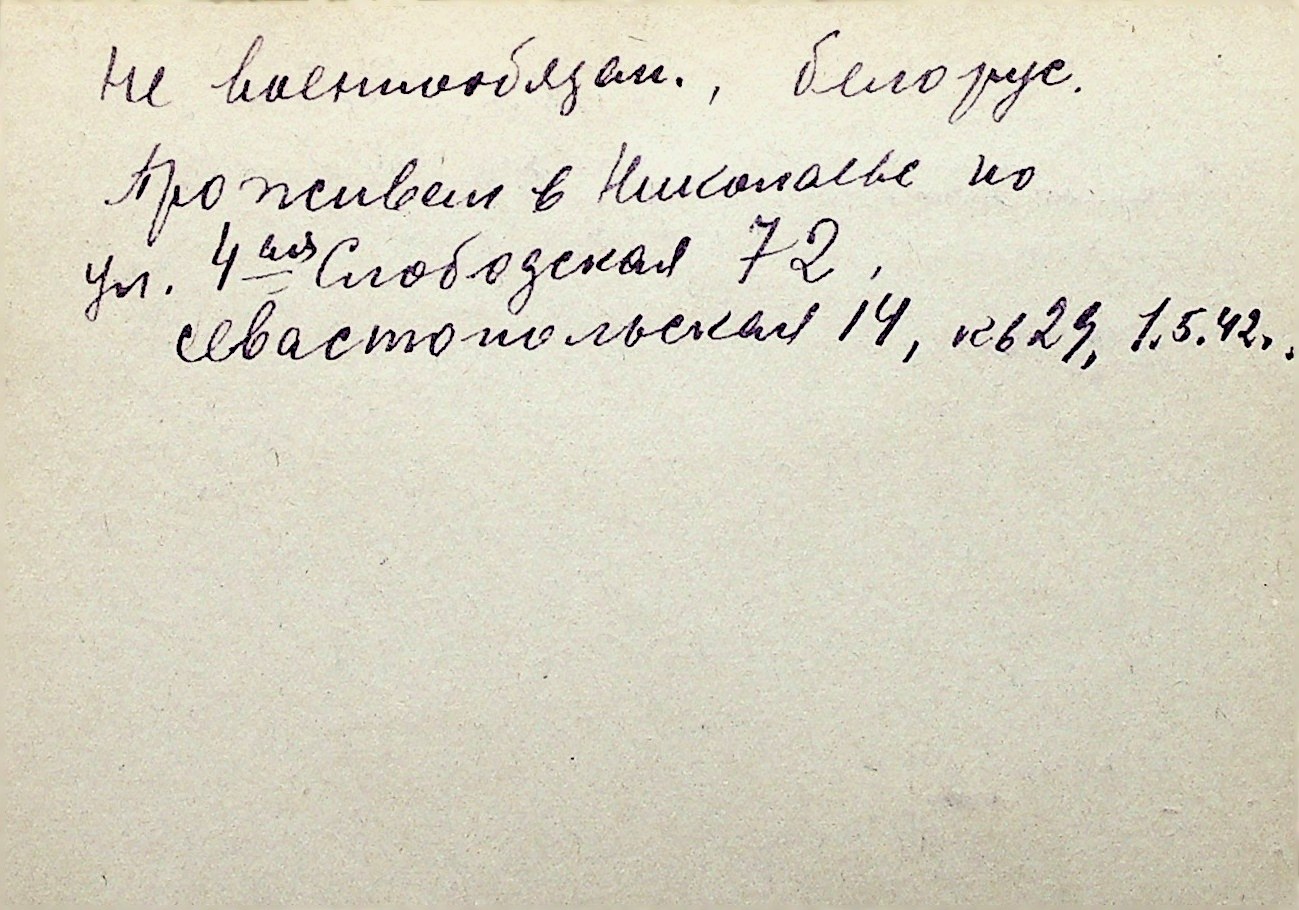 Не военнообязан., белорус.
Проживал в Николаеве по
ул. 4ая Слободская 72,
Севастопольская 14, кв 29, 1.5.42.,